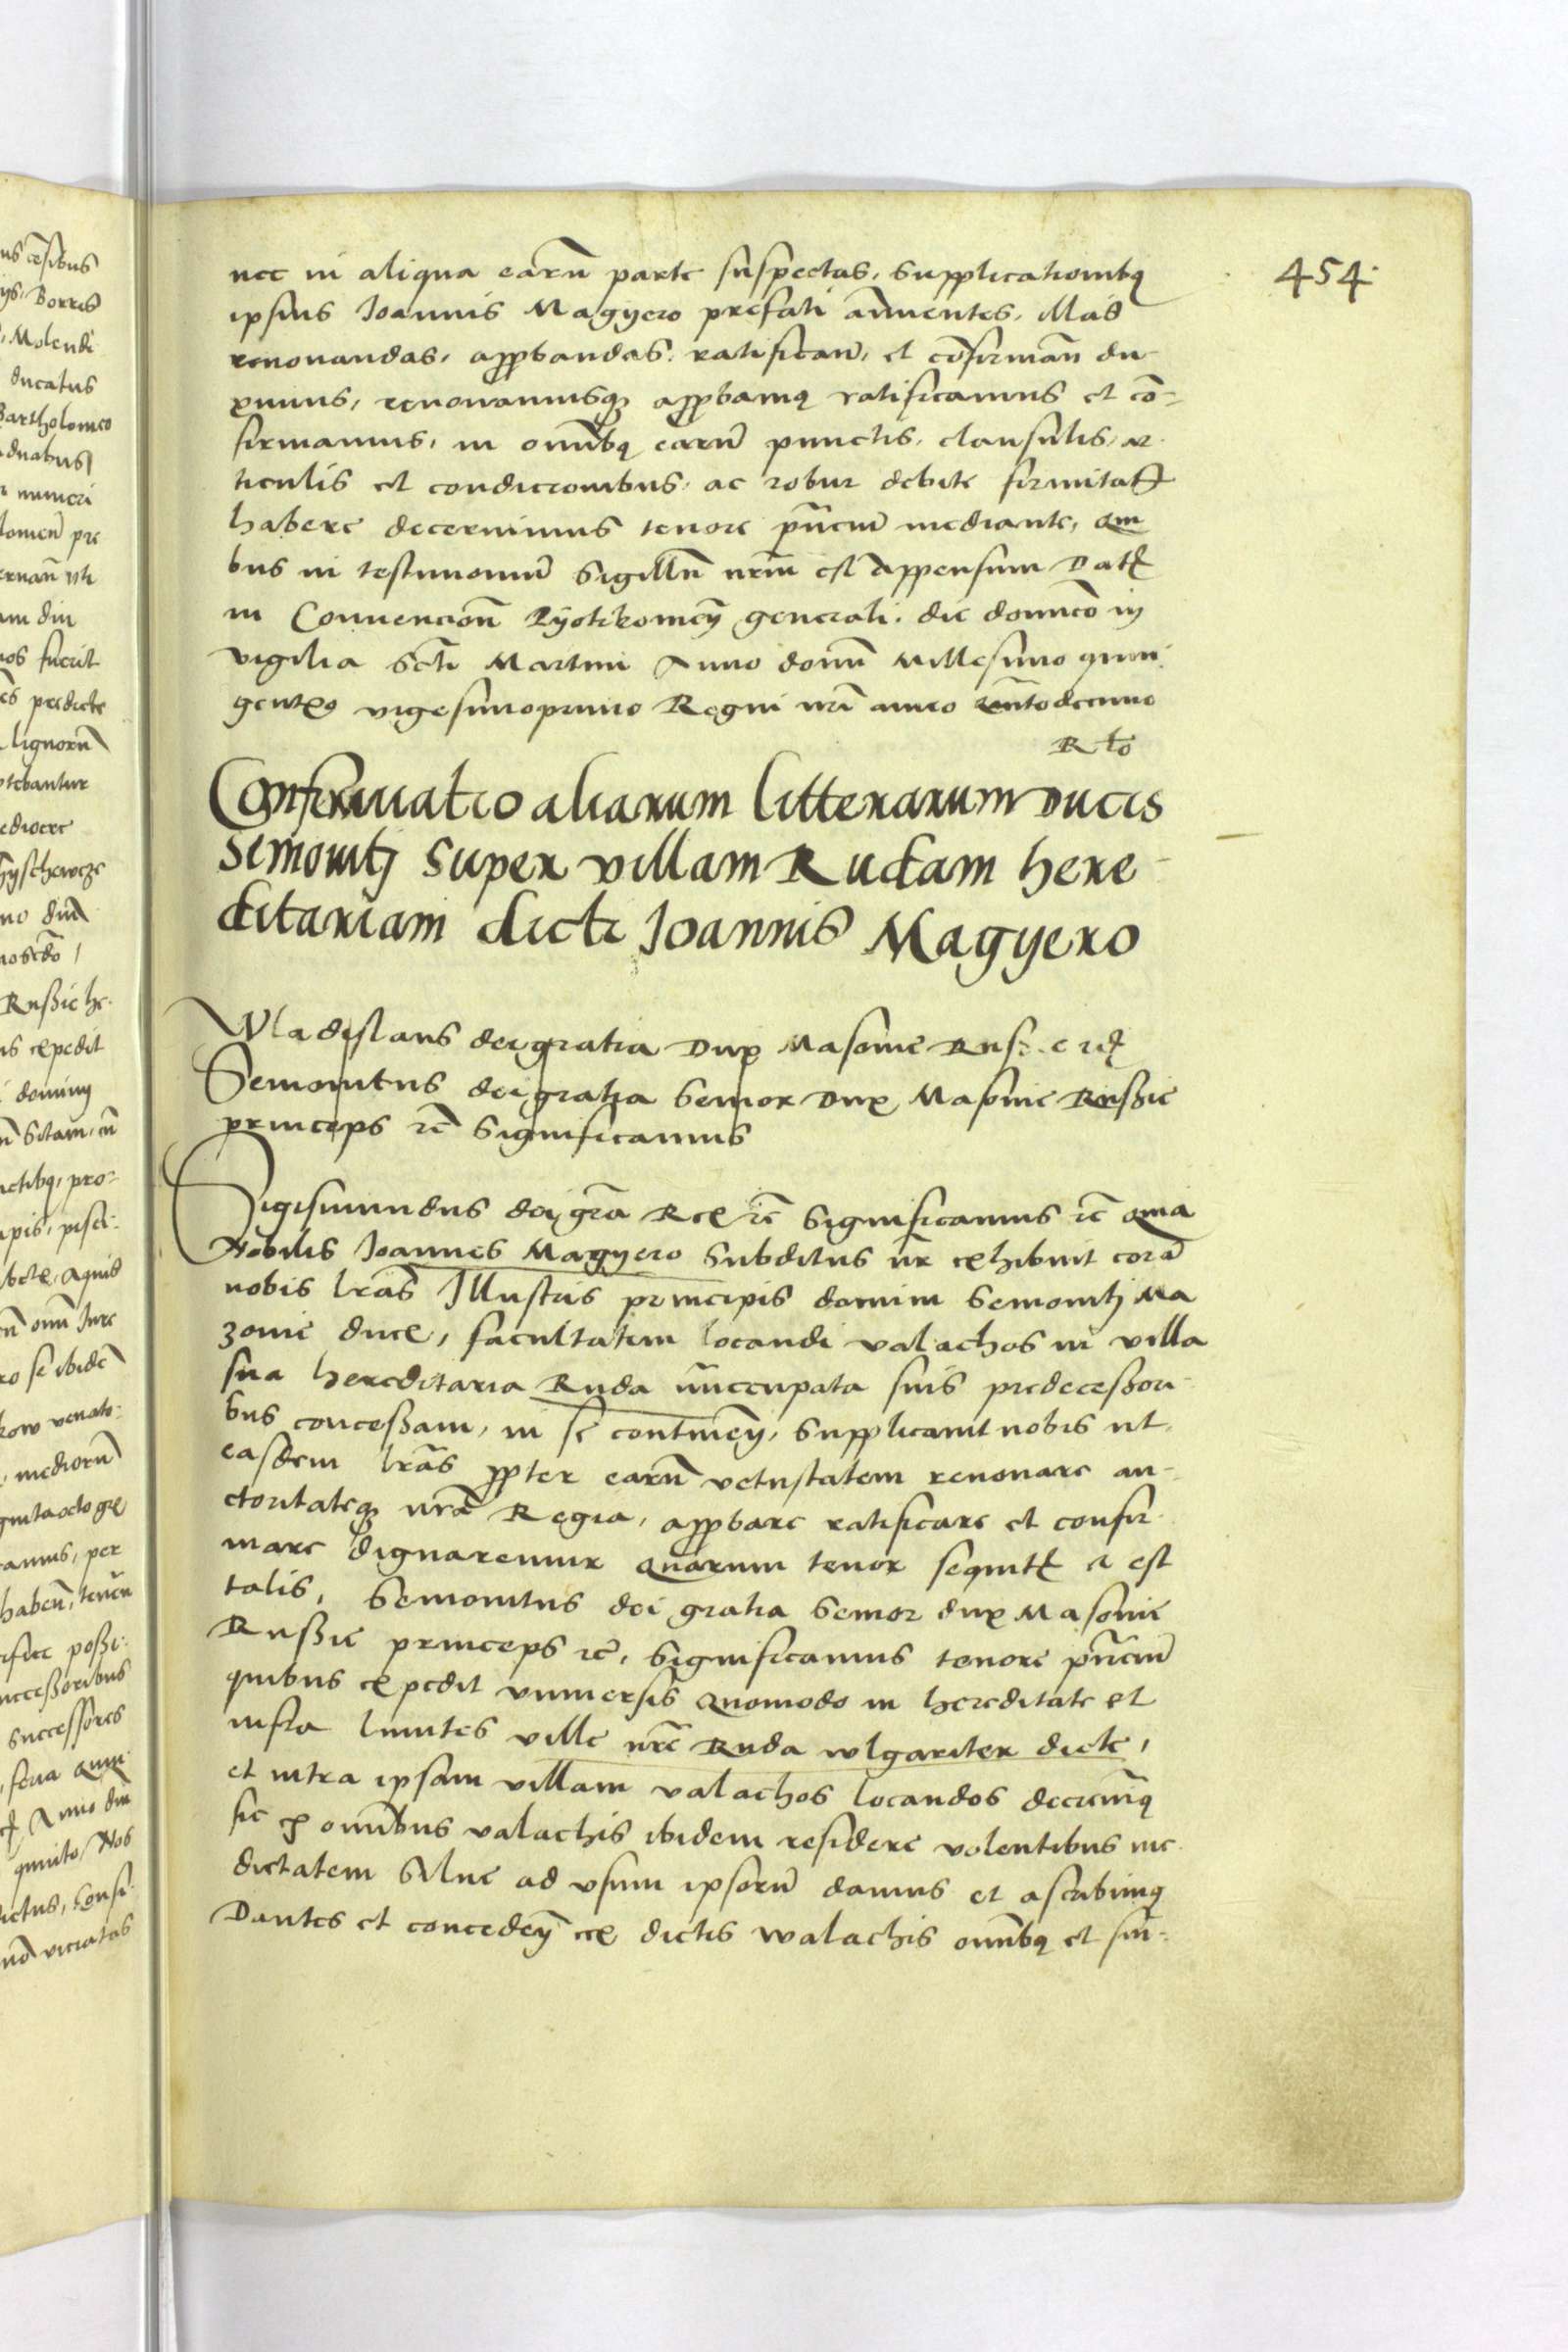 454.
nec in aliqua earū parte suspectas, supplicationibq
ipsius Joannis Magyero prefati annuentes, Illas
renouandas, approbandas, ratifican̄, et cōfirman̄ du-
ximus, renouamusq approbamq ratificamus et cō-
firmamus, in omībq earū punctis, clausulis, ar-
ticulis et condicionibus, ac robur debite firmitatꝭ
habere decernimus tenore pn̄ciū mediante, qui
bus in testimoniū Sigillū nrm̄ est Appensum Datꝭ
in Convencion̄ Pyotrkowien̄ generali, die dominico in
vigilia Scti Martini Anno domī Millesimo quin
gentēo vigesimoprimo Regni nrī anno quītodecimo
R tō
Confirmatio aliarum litterarum Ducis
Semouitj super villam Rudam here-
ditariam dicti Joannis Magyero
Wladislaus dei gratia Dux Masouie Russie
Semouitus dei gratia Senior Dux Masouie Russie
princeps rc̄ Significamus
Sigismundus dei grā Rex rc̄ Significamus rc̄ quia
Nobilis Joannes Magyero subditus nr̄ exhibuit corā
nobis lrās Illustris principis domini Semouitj Ma
zouie duce, facultatem locandi valachos in villa
sua hereditaria Ruda nuncupata suis predecessori-
bus concessam, in se continen̄, supplicauit nobis ut
easdem lrās ꝓpter earū vetustatem renouare au-
ctoritateq nrā Regia, approbare ratificare et confir-
mare dignaremur Quarum tenor sequitꝭ et est
talis, Semouitus dei gratia Senior dux Masouie
Russie princeps rc̄, Significamus tenore pn̄ciū
quibus expedit vniuersis Quomodo in hereditate et
infra limites ville nrē Ruda wlgariter dicte,
et intra ipsam villam valachos locandos decreuimq
sic ꝙ omībus valachis ibidem residere volentibus me-
dietatem Silue ad vsum ipsorū damus et ascribimq
Dantes et conceden̄ ex dictis walachis omībq et sin-